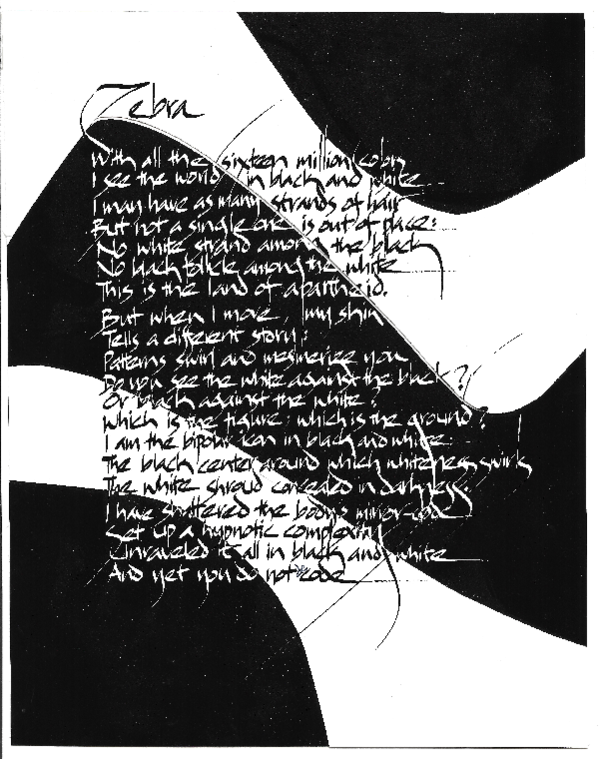 Zebra
With all the sixteen million colors
I see the world in black and white
I may have as many strands of hair
But not a single one is out of place:
No white strand among the black
No black follicle among the white
This is the land of apartheid.
But when I move, my skin
Tells a different story:
Patterns swirl and mesmerize you
Do you see the white against the black?
Or black against the white?
Which is the figure: which is the ground?
I am the bipolar icon in black and white:
The black center around which whiteness swirls
The white shroud concealed in darkness:
I have shattered the body's mirror-code
Set up a hypnotic complexity
Unraveled it all in black and white
And yet you do not